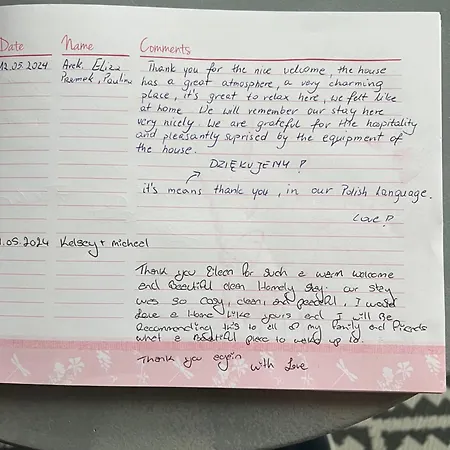 Date Name Comments
12.05.2024 Arek, Eliza Thank you for the nice velcome, the house
Paulina has a great atmosphere, a very charming
place, it's great to relax here, we felt like
at home. We will remember our stay here
very nicely. We are grateful for the hospitality
and pleasantly suprised by the equipment of
the house.
DZIĘKUJEMY!
it's means thank you, in our Polish language.
Love
.05.2024 Kelsey + micheal
Thank you Eileen for such a warm welcome
and Beautiful clean Homely stay. our stay
was so cosy, clean and peaceful, I would
Love a Home Like yours and I will Be
Recommending this to all of my family and friends
what a Beautiful place to wake up to.
Thank you again with Love